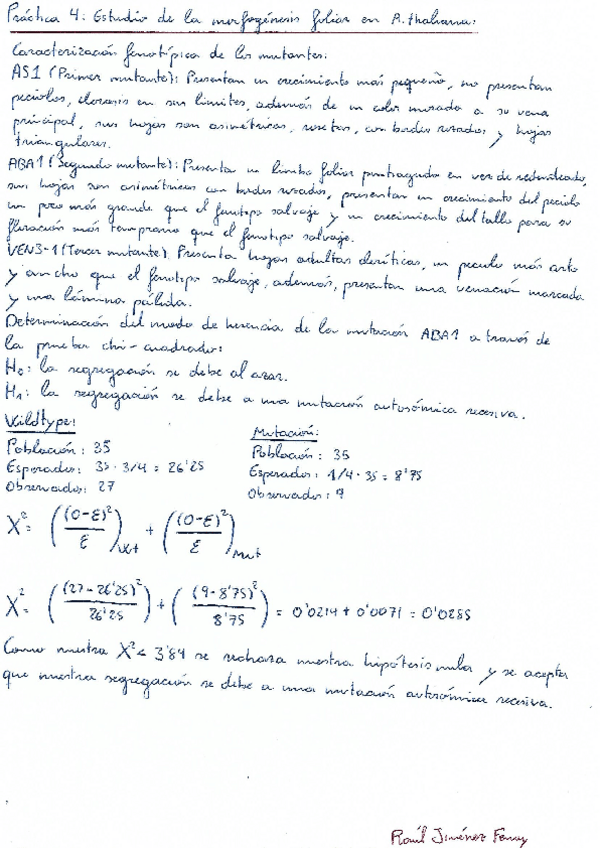 Práctica 4: Estudio de la morfogénesis foliar en A. thaliana:
Caracterización fenotípica de los mutantes:
AS1 (Primer mutante): Presentan un crecimiento más pequeño, no presentan
peciolos, clorosis en sus limites, además de un color morado a su vena
principal, sus hojas son asimétricas, rosetas, con bordes rosados y hojas
triangulares.
ABA1 (Segundo mutante): Presenta un limbo foliar puntiagudo en vez de redondeado,
sus hojas son asimétricas con bordes rosados, presentan un crecimiento del peciolo
un poco más grande que el fenotipo salvaje y un crecimiento del tallo para su
floración más temprano que el fenotipo salvaje.
VEN3-1 (Tercer mutante). Presenta hojas adultas cloróticas, un peciolo más corto
y ancho que el fenotipo salvaje, además, presentan una venación marcada
y una lámina pálida.
Determinación del modo de herencia de la mutación ABA1 a través de
la prueba chi-cuadrado:
H₀: la segregación se debe al azar.
H₁: la segregación se debe a una mutación autosómica recesiva.
Wildtype:
Población: 35
Esperados: 35 · 3/4 = 26'25
Observados: 27
Mutación:
Población: 35
Esperados: 1/4 · 35 = 8'75
Observados: 9
X² = ((O-E)²/E)wt + ((O-E)²/E)Mut
X² = ((27-26'25)²/26'25) + ((9-8'75)²/8'75) = 0'0214 + 0'0071 = 0'0285
Como nuestra X² < 3'84 se rechaza nuestra hipótesis nula y se acepta
que nuestra segregación se debe a una mutación autosómica recesiva.
Raúl Jiménez